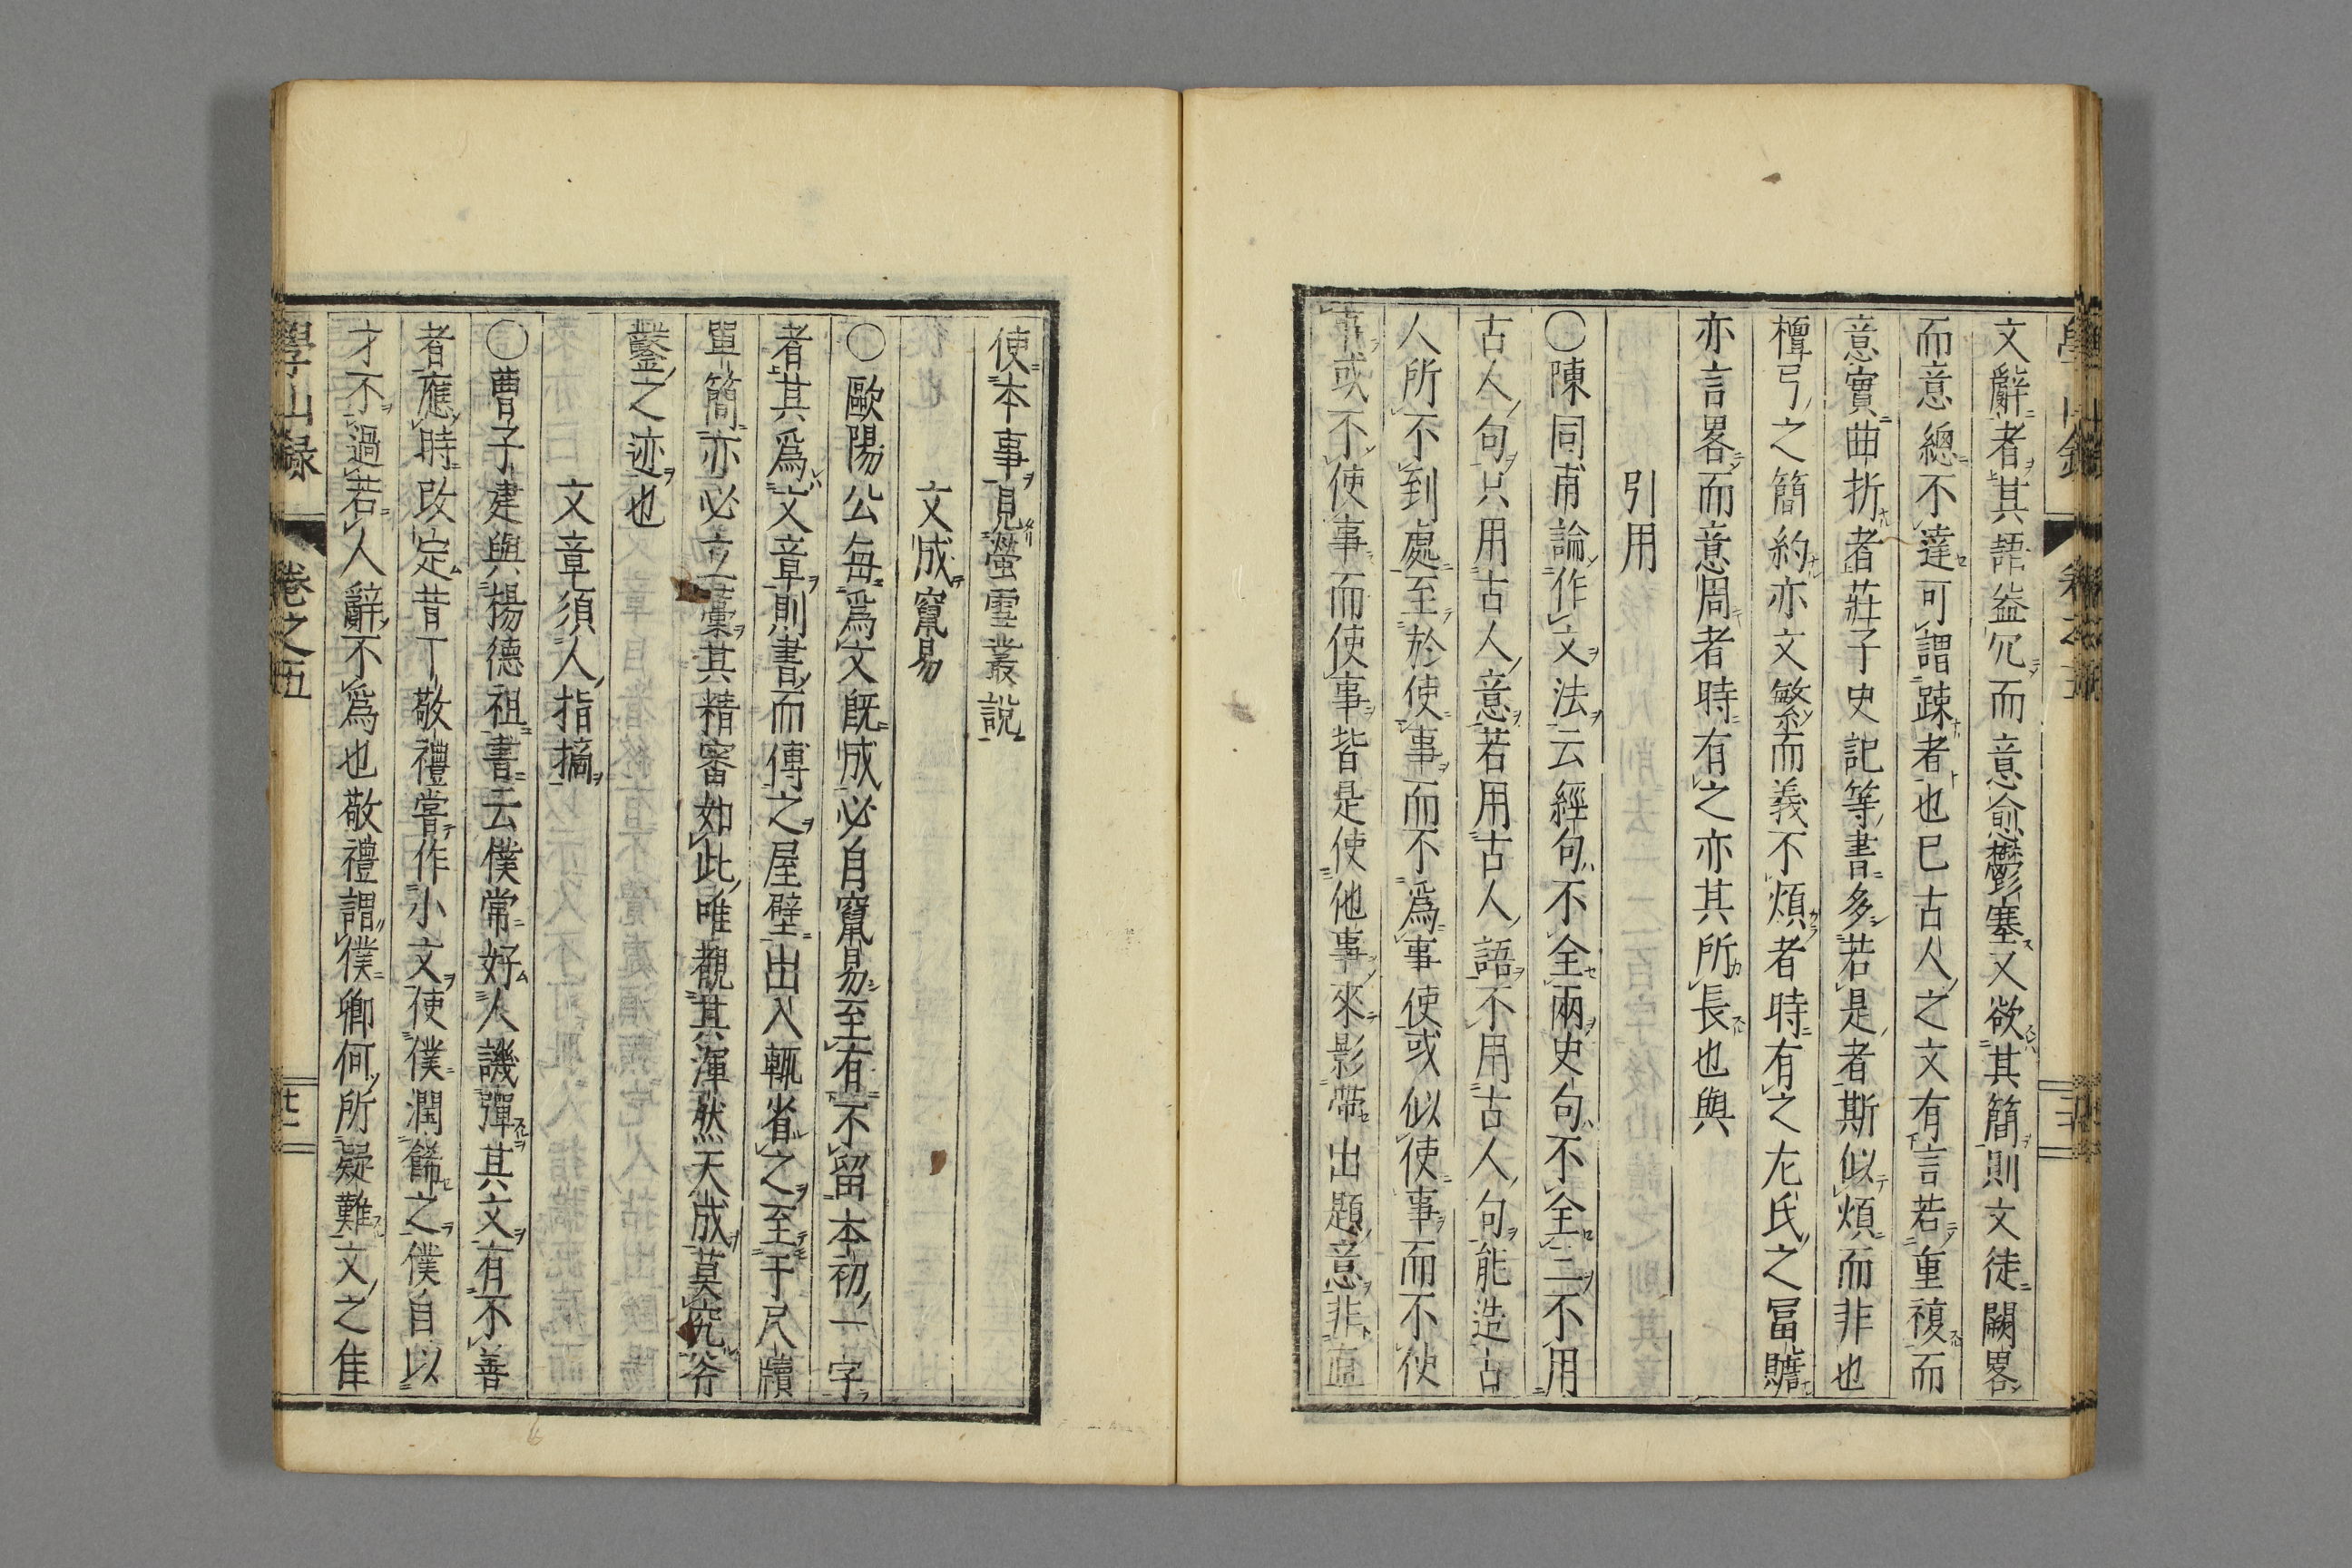 文辭者其語益冗而意愈鬱塞又欲其簡則文徒闕畧
而意總不達可謂踈者也已古人之文有言若重複而
意實曲折者莊子史記等書多若是者斯似煩而非也
檀弓之簡約亦文繁而義不煩者時有之左氏之冨贍
亦言畧而意周者時有之亦其所長也與
引用
〇陳同甫論作文法云經句不全兩史句不全三不用
古人句只用古人意若用古人語不用古人句能造古
人所不到處至於使事而不爲事使或似使事而不使
事或不使事而使事皆是使他事來影帶出題意非直
使本事見螢雪叢說
文成竄易
〇歐陽公每爲文既成必自竄易至有不留本初一字
者其爲文章則書而傅之屋壁出入輒省之至于尺牘
單簡亦必立藁其精審如此唯觀其渾然天成莫究斧
鑿之迹也
文章須人指摘
〇曹子建與楊德祖書云僕常好人譏彈其文有不善
者應時改定昔丁敬禮嘗作小文使僕潤餙之僕自以
才不過若人辭不爲也敬禮謂僕卿何所疑難文之隹
學山録
卷之五
廿一